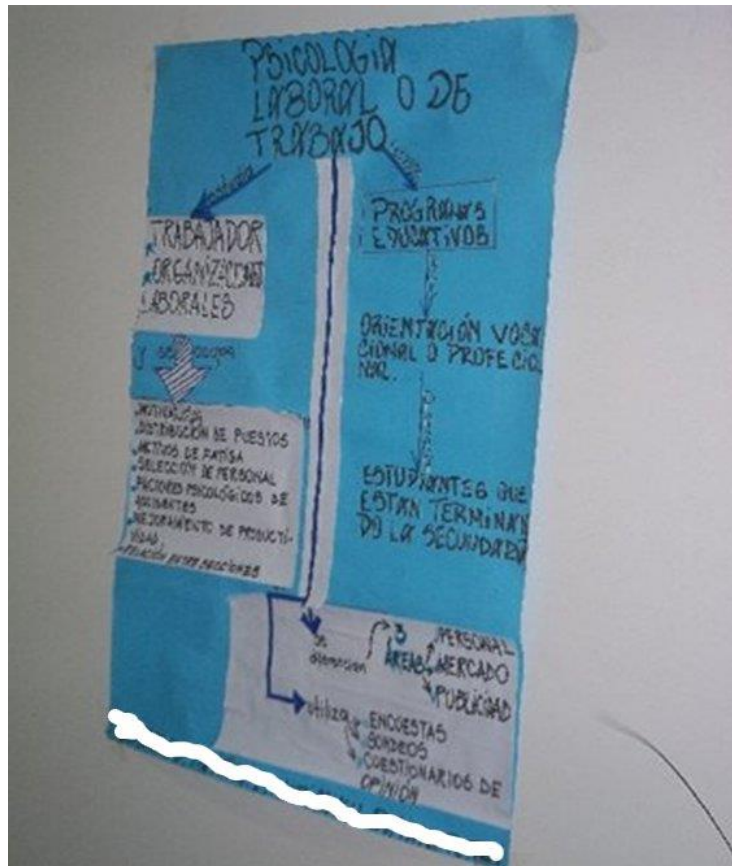 PSICOLOGIA
LABORAL O DE
TRABAJO
estudia
TRABAJADOR
ORGANIZACIONES
LABORALES
y se
MOTIVACIÓN
DISTRIBUCIÓN DE PUESTOS
MOTIVOS DE FATIGA
SELECCIÓN DE PERSONAL
FACTORES PSICOLÓGICOS DE
ACCIDENTES
MEJORAMIENTO DE PRODUCTI-
VIDAD
RELACIÓN ENTRE SECCIONES
PROGRAMAS
EDUCATIVOS
ORIENTACIÓN VOCA
CIONAL O PROFECIO
NAL.
ESTUDIANTES QUE
ESTAN TERMINAN
DO LA SECUNDARIA
se
3
AREAS
PERSONAL
MERCADO
PUBLICIDAD
utiliza
ENCUESTAS
SONDEOS
CUESTIONARIOS DE
OPINIÓN